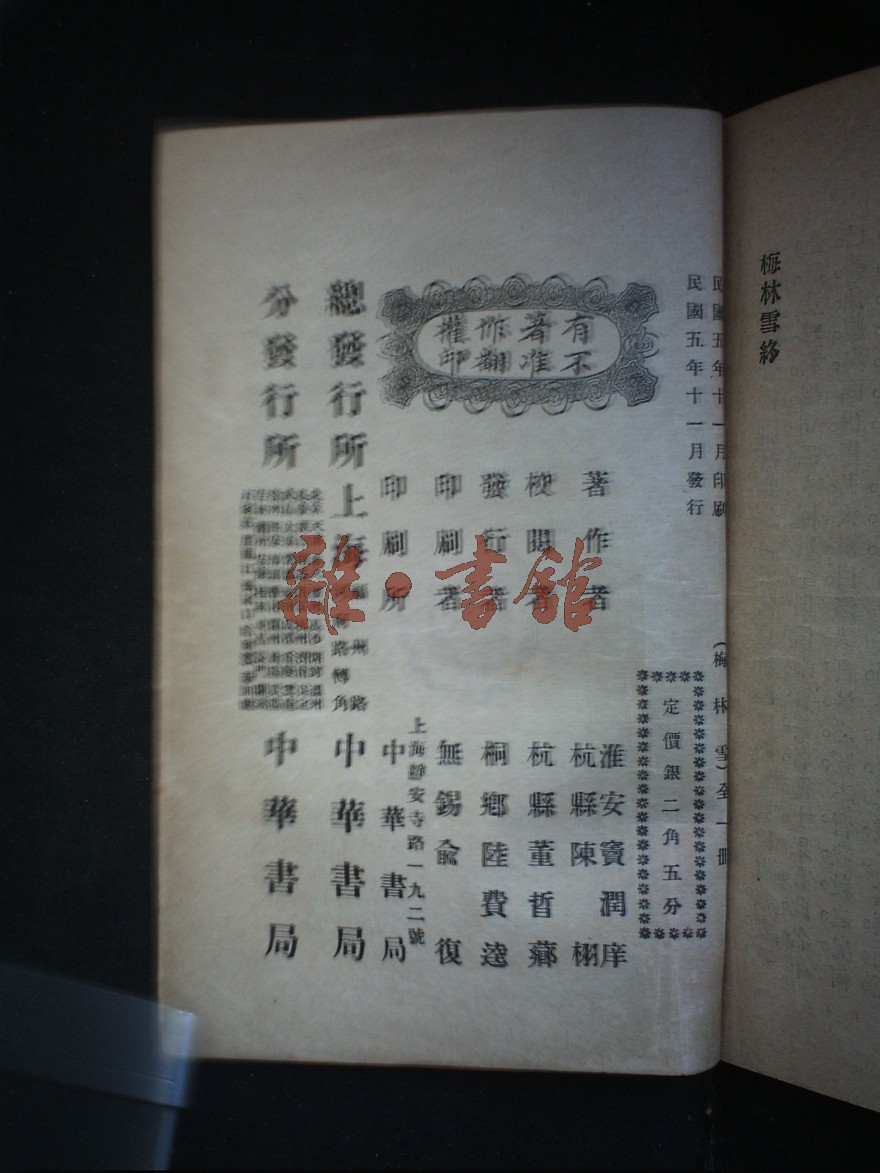 梅林雪終
民國五年十一月印刷
民國五年十一月發行
(梅林雪)全一冊
定價銀二角五分
有著作權
不准翻印
著作者
淮安竇潤庠
杭縣陳栩
校閱者
杭縣董晳薌
發行者
桐鄉陸費逵
印刷者
無錫俞復
印刷所
上海靜安寺路一九二號
中華書局
總發行所
上海
福州路
河南路轉角
中華書局
分發行所
中華書局
雜·書館